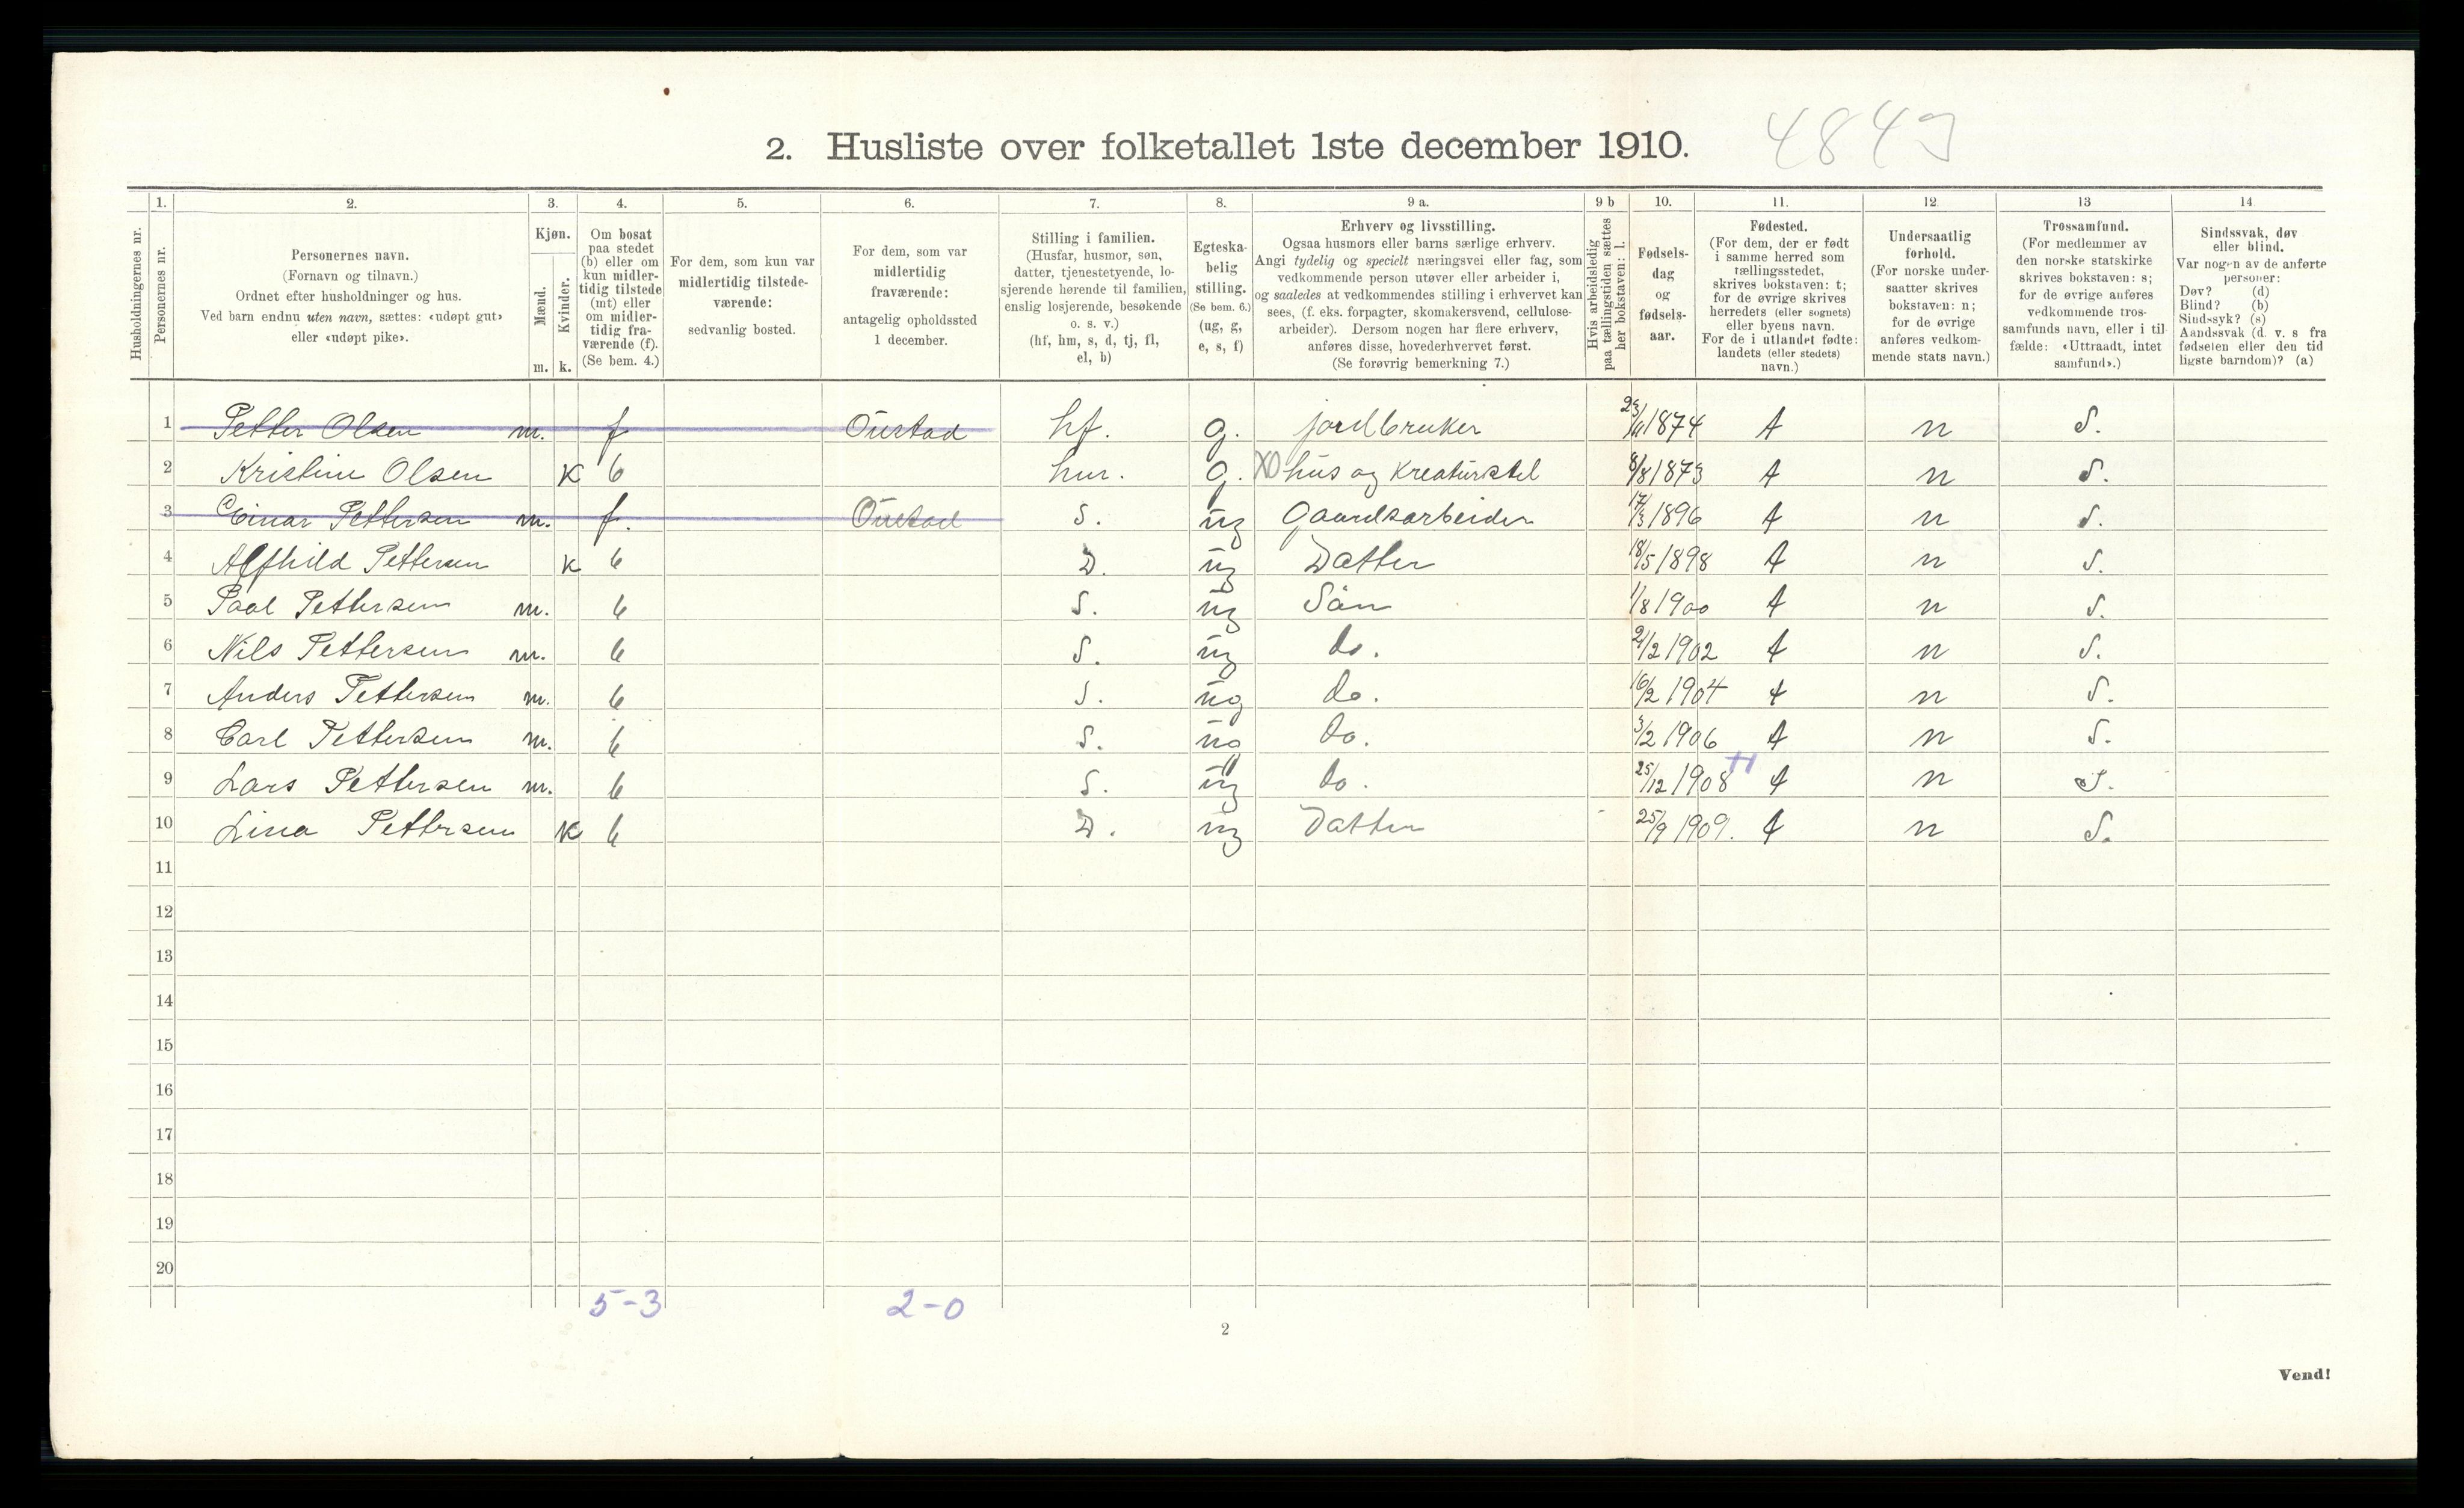 2. Husliste over folketallet 1ste december 1910.
4843
1. 2. 3. 4. 5. 6. 7. 8. 9 a. 9 b 10. 11. 12. 13 14
Husholdningernes nr.
Personernes nr.
Personernes navn.
(Fornavn og tilnavn.)
Ordnet efter husholdninger og hus.
Ved barn endnu uten navn, sættes: «udøpt gut»
eller «udøpt pike».
Kjøn.
Mænd.
Kvinder.
m. k.
Om bosat
paa stedet
(b) eller om
kun midler-
tidig tilstede
(mt) eller
om midler-
tidig fra-
værende (f).
(Se bem. 4.)
For dem, som kun var
midlertidig tilstede-
værende:
sedvanlig bosted.
For dem, som var
midlertidig
fraværende:
antagelig opholdssted
1 december.
Stilling i familien.
(Husfar, husmor, søn,
datter, tjenestetyende, lo-
sjerende hørende til familien,
enslig losjerende, besøkende
o. s. v.)
(hf, hm, s, d, tj, fl,
el, b)
Egteska-
belig
stilling.
(Se bem. 6.)
(ug, g,
e, s, f)
Erhverv og livsstilling.
Ogsaa husmors eller barns særlige erhverv.
Angi tydelig og specielt næringsvei eller fag, som
vedkommende person utøver eller arbeider i,
og saaledes at vedkommendes stilling i erhvervet kan
sees, (f. eks. forpagter, skomakersvend, cellulose-
arbeider). Dersom nogen har flere erhverv,
anføres disse, hovederhvervet først.
(Se forøvrig bemerkning 7.)
Hvis arbeidsledig
paa tællingstiden sættes
her bokstaven: l.
Fødsels-
dag
og
fødsels-
aar.
Fødested.
(For dem, der er født
i samme herred som
tællingsstedet,
skrives bokstaven: t;
for de øvrige skrives
herredets (eller sognets)
eller byens navn.
For de i utlandet fødte:
landets (eller stedets)
navn.)
Undersaatlig
forhold.
(For norske under-
saatter skrives
bokstaven: n;
for de øvrige
anføres vedkom-
mende stats navn.)
Trossamfund.
(For medlemmer av
den norske statskirke
skrives bokstaven: s;
for de øvrige anføres
vedkommende tros-
samfunds navn, eller i til
fælde: «Uttraadt, intet
samfund».)
Sindssvak, døv
eller blind.
Var nogen av de anførte
personer:
Døv? (d)
Blind? (b)
Sindssyk? (s)
Aandssvak (d. v. s fra
fødselen eller den tid
ligste barndom)? (a)
1 Petter Olsen m. f Oustad hf. g. jordbruker 23/11 1874 t n S.
2 Kristine Olsen K b hm. g. XO hus og Kreaturstel 8/8 1873 t n S.
3 Einar Pettersen m. f. Oustad S. ug Gaardsarbeider 17/3 1896 t n S.
4 Alfhild Pettersen K b D. ug Datter 18/5 1898 t n S.
5 Paal Pettersen m. b S. ug Sön 1/8 1900 t n S.
6 Nils Pettersen m. b S. ug do. 21/2 1902 t n S.
7 Anders Pettersen m. b S. ug do. 16/2 1904 t n S.
8 Carl Pettersen m. b S. ug do. 3/2 1906 t n S.
9 Lars Pettersen m. b S. ug do. 25/12 1908 t n S.
10 Lina Pettersen K b D. ug Datter 25/9 1909. t n S.
11
12
13
14
15
16
17
18
19
20
5-3 2-0
2
Vend!